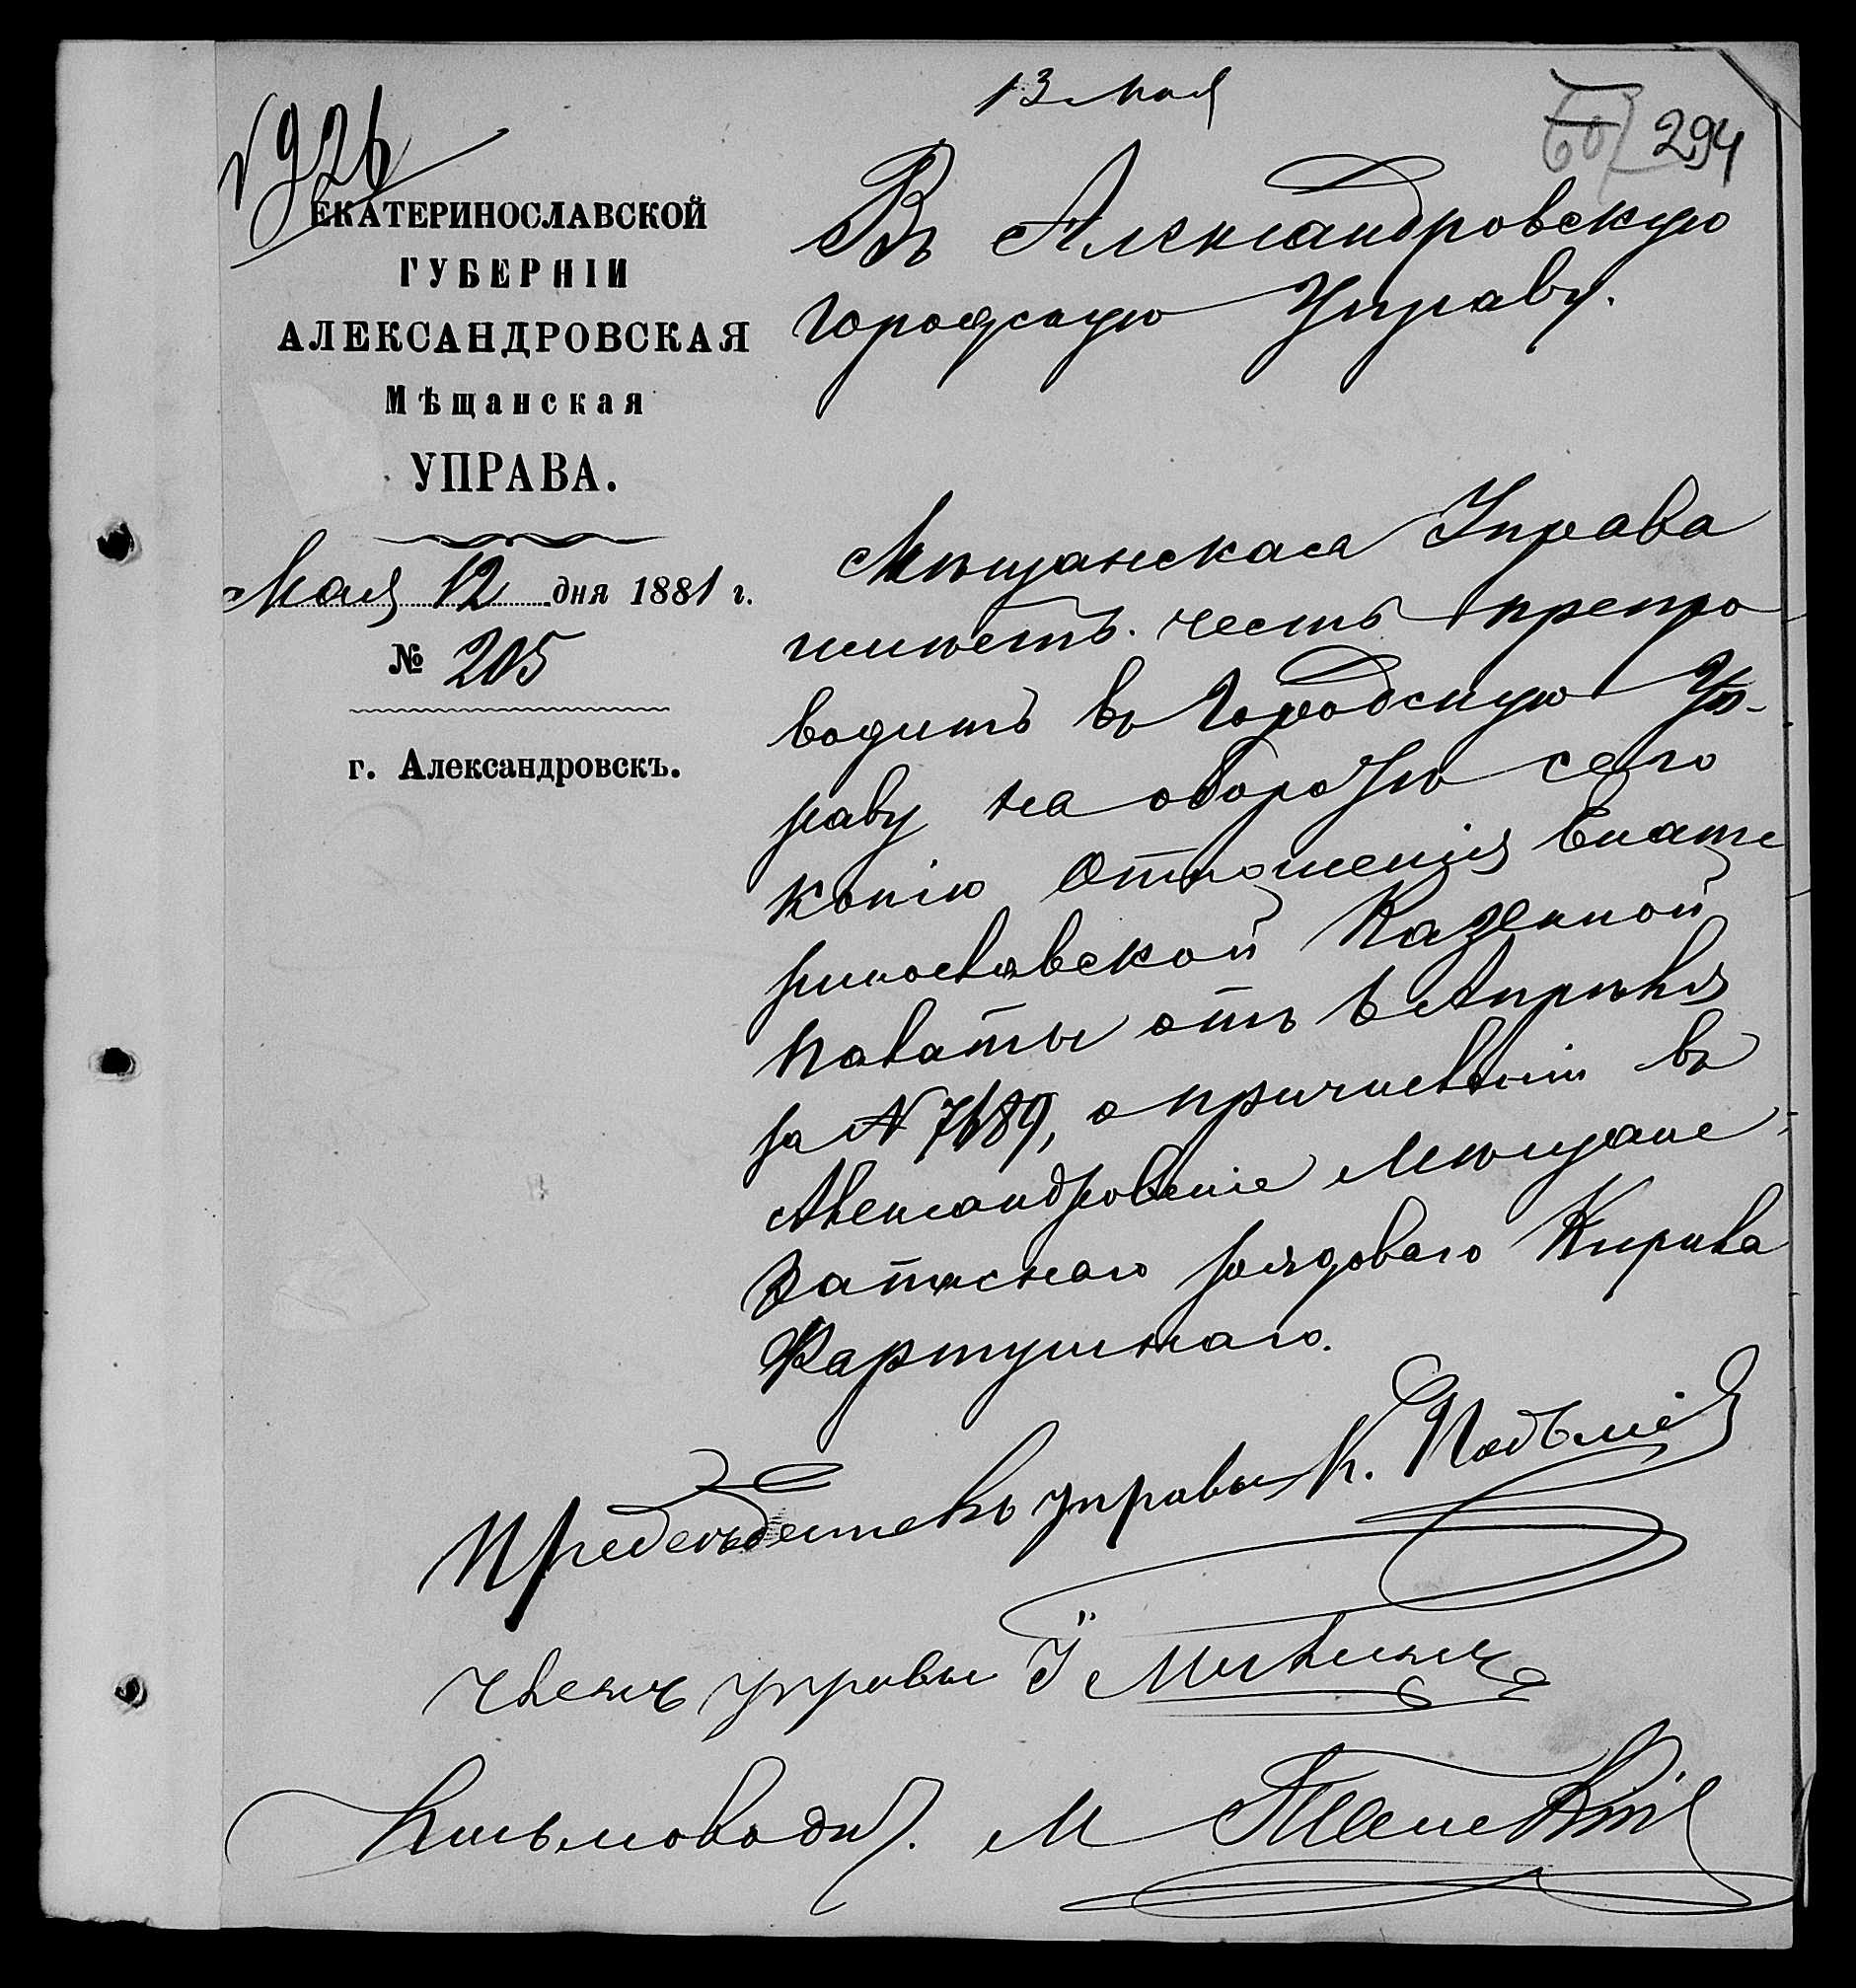 13 мая
№ 926
294
ЕКАТЕРИНОСЛАВСКОЙ
ГУБЕРНІИ
АЛЕКСАНДРОВСКАЯ
Мѣщанская
УПРАВА.
Мая 12 дня 1881 г.
№ 205
г. Александровскъ.
Въ Александровскую
Городскую Управу.
Мѣщанская Управа
имѣетъ честь препро
водить въ Городскую Уп-
раву на оборотѣ сего
копію отношенія Екате
ринославской Казенной
Палаты отъ 6 Апрѣля
за № 7689, о причисленіи въ
Александровскіе Мѣщане
запаснаго рядоваго Кирила
Картушнаго.
Предсѣдатель управы К.
Членъ управы І
Письмовод. М